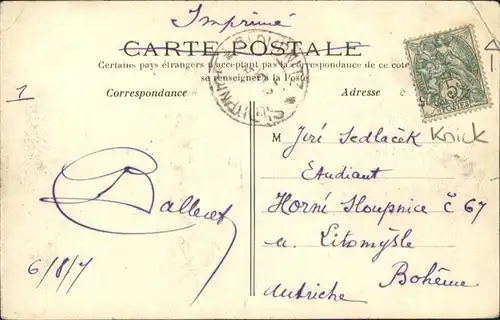 Imprimé
CARTE POSTALE
Certains pays étrangers n'acceptant pas la correspondance de ce côté
se renseigner à la Poste
Correspondance
Adresse
1
Knick
M Jiří Sedlaček
Etudiant
Horné Sloupnice č 67
u. Litomyšle
Bohême
Autriche
6/8/7